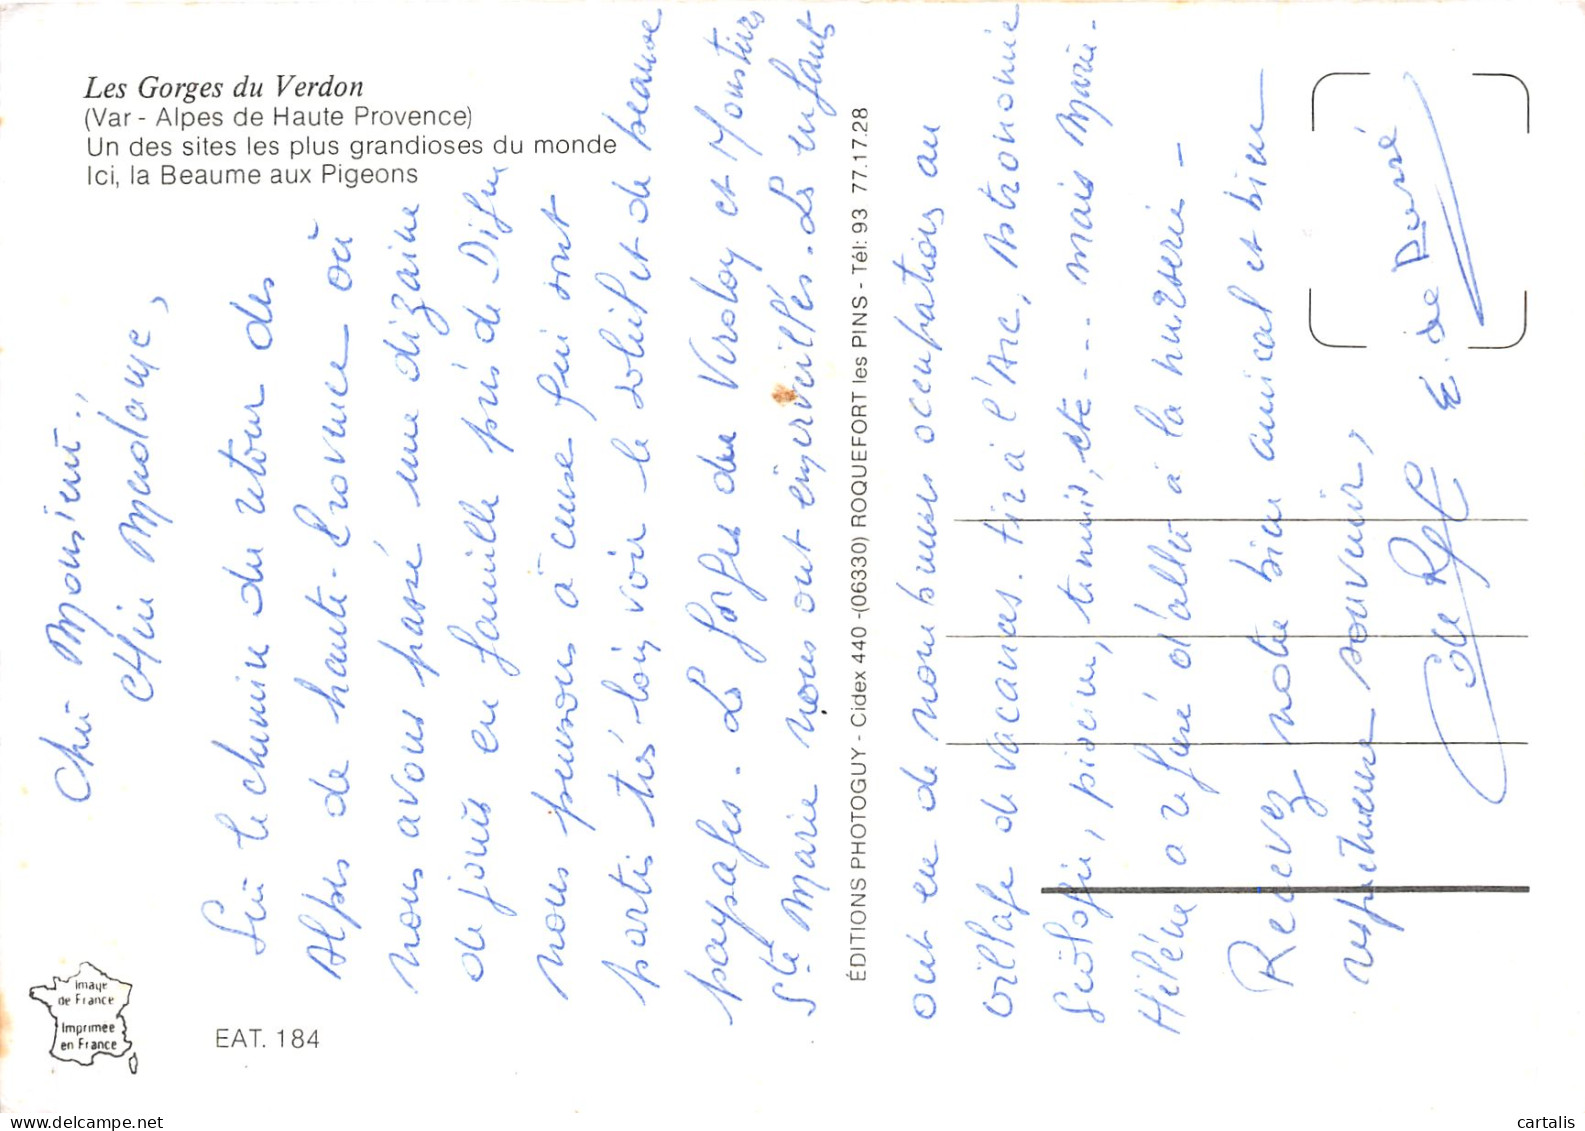 Les Gorges du Verdon
(Var - Alpes de Haute Provence)
Un des sites les plus grandioses du monde
Ici, la Beaume aux Pigeons
Cher Monsieur,
Chère Madame,
Sur le chemin du retour des
Alpes de haute-Provence où
nous avons passé une dizaine
de jours en famille près de Digne
nous pensons à ceux qui sont
partis très loin voir le soleil et de beaux
paysages. Les gorges du Verdon et Moustiers
Ste Marie nous ont émerveillés. Les enfants
ÉDITIONS PHOTOGUY - Cidex 440 -(06330) ROQUEFORT les PINS - Tél: 93 77.17.28
ont eu de nombreuses occupations au
village de vacances. tir à l'Arc, Astronomie
Géologie, piscine, tennis, etc... mais Marie-
Hélène a refusé d'aller à la nurserie -
Recevez notre bien amical et bien
respectueux souvenir,
E. de
Image
de France
Imprimée
en France
EAT. 184
cartalis.com